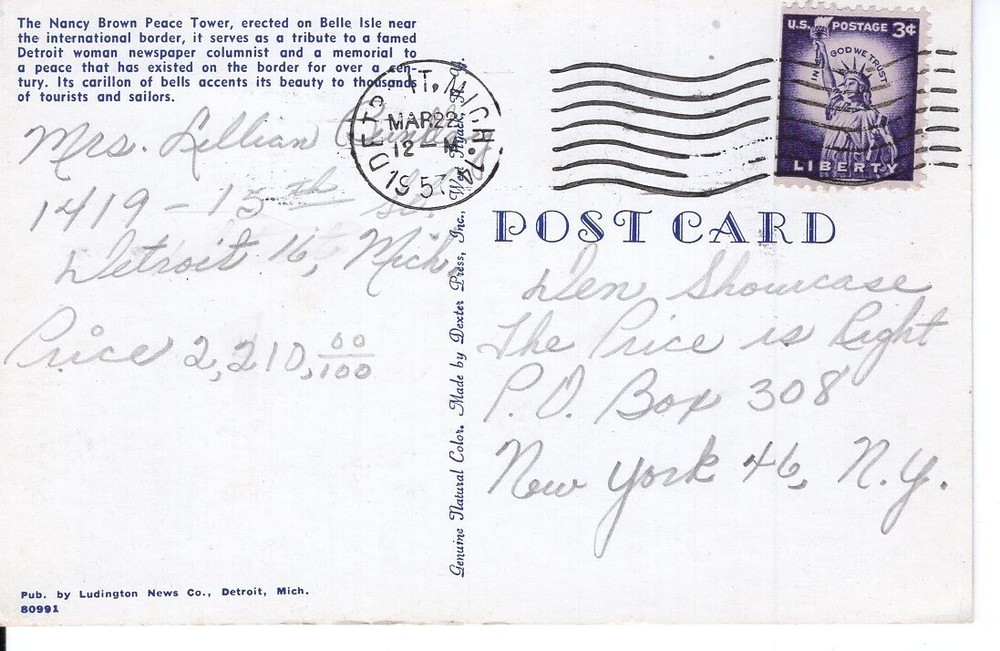 The Nancy Brown Peace Tower, erected on Belle Isle near
the international border, it serves as a tribute to a famed
Detroit woman newspaper columnist and a memorial to
a peace that has existed on the border for over a cen-
tury. Its carillon of bells accents its beauty to thousands
of tourists and sailors.
Mrs. Lillian
1419 - 15th st.
Detroit 16, Mich.
Price 2,210,00/100
Pub. by Ludington News Co., Detroit, Mich.
80991
Genuine Natural Color. Made by Dexter Press, Inc., West Nyack, N. Y.
DETROIT, MICH. 14
MAR 22
12 - M
1957
U.S. POSTAGE 3¢
IN GOD WE TRUST
LIBERTY
POST CARD
Den Showcase
The Price is Right
P.O. Box 308
New York 46, N.Y.